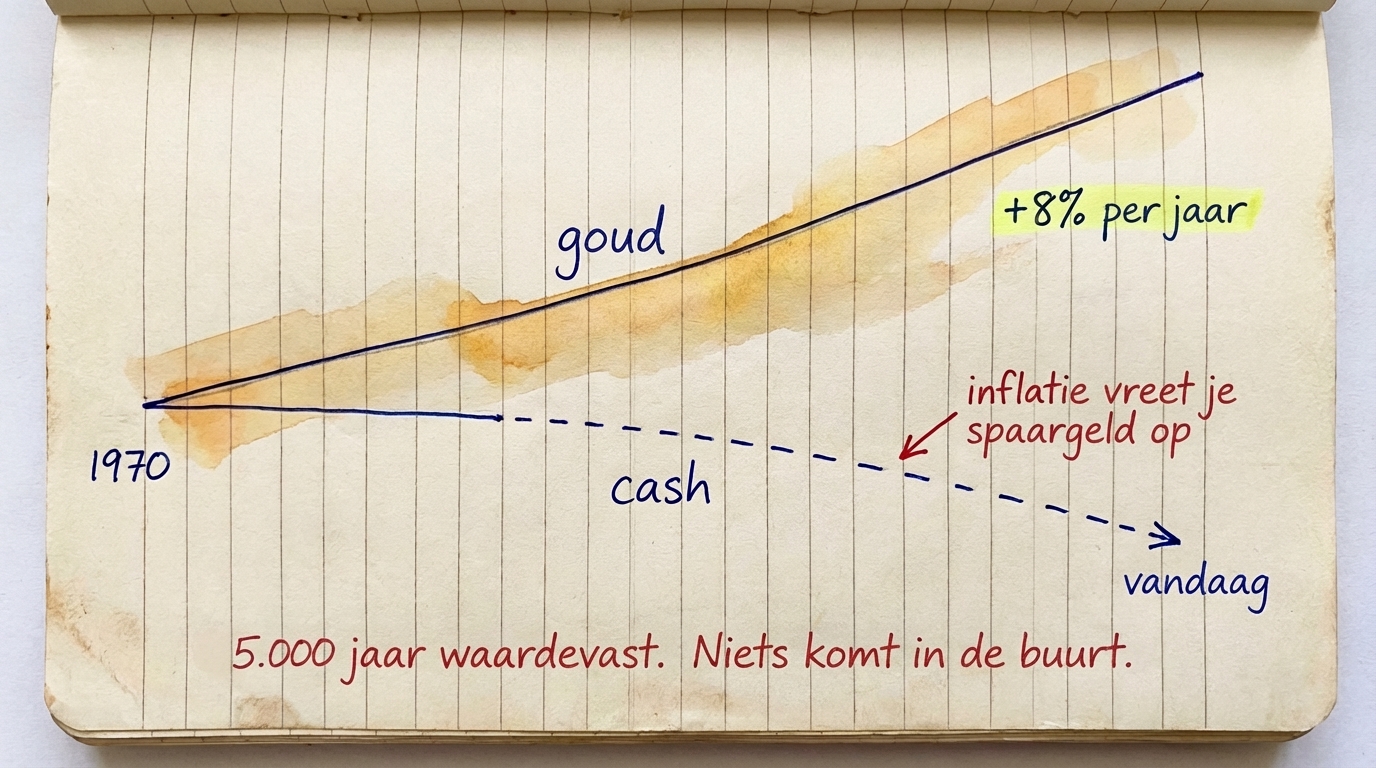 goud
+8% per jaar
inflatie vreet je
spaargeld op
1970
cash
vandaag
5.000 jaar waardevast. Niets komt in de buurt.